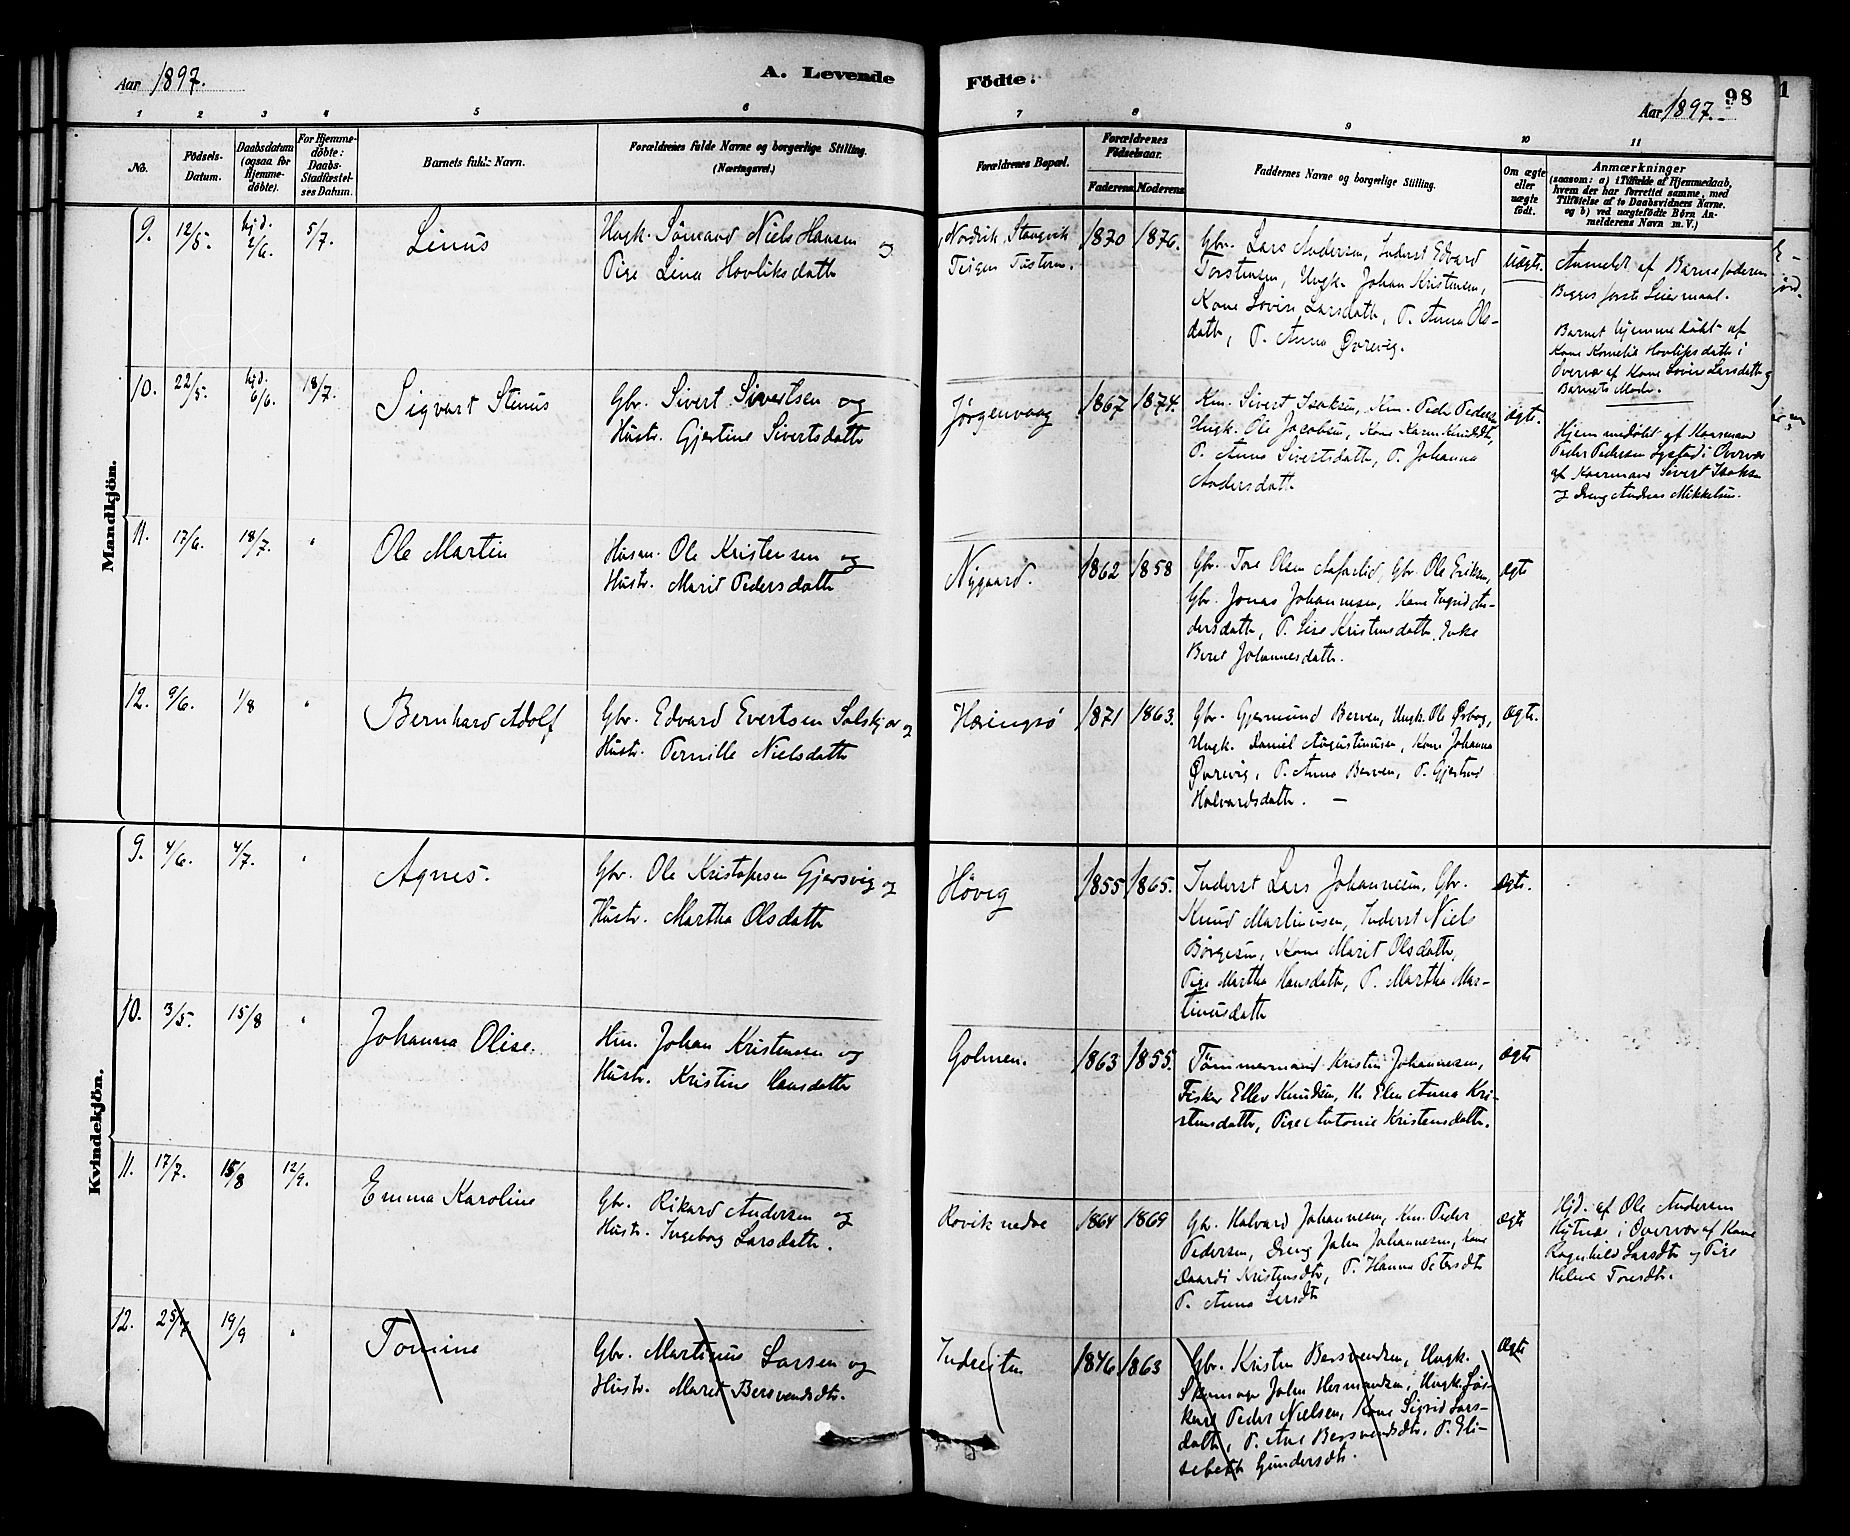 Aar 1897. A. Levende Födte. Aar 1897. 98
1 2 3 4 5 6 7 8 9 10 11
No. Födsels-Datum. Daabsdatum (ogsaa for Hjemme-döbte). For Hjemme-döbte: Daabs-Stadfæstel-ses Datum. Barnets fulde Navn. Forældrenes fulde Navne og borgerlige Stilling. (Næringsvei.) Forældrenes Bopæl. Forældrenes Födselsaar. Faderens Moderens Faddernes Navne og borgerlige Stilling. Om ægte eller uægte födt. Anmærkninger
(saasom: a) i Tilfælde af Hjemmedaab,
hvem der har forrettet samme, med
Tilföielse af to Daabsvidners Navne,
og b) ved uægtefödte Börn An-
melderens Navn m. V.)
Mandkjön.
9. 12/5. hjd. 2/6. 5/7. Linus
Ungk. Sømand Niels Hansen og
Pige Lina Hovliksdattr
Nordvik, Stangvik
Teigen Tustern.
1870 1876.
Gbr. Lars Andersen, Inderst Edvard
Torstensen, Ungk. Johan Kristensen,
Kone Lovise Larsdattr, P. Anna Ols-
dattr, P. Anna Øvrevig.
Uægte.
Anmeldt af Barnefaderen
Begges første Leiermaal.
Barnet hjemmedøbt af
Kone Kornelia Hovliksdattr i
Overvær af Kone Lovise Larsdattr og
Barnets Moder.
10. 22/5. hjd. 6/6. 18/7. Sigvart Stenus
Gbr. Sivert Sivertsen og
Hustr. Gjertine Sivertsdattr
Jørgenvaag 1867 1874.
Km. Sivert Isaksen, Km. Peder Pedersen
Ungk. Ole Jacobsen, Kone Karen Knudsdtr,
P. Anna Sivertsdattr, P. Johanna
Andersdattr.
ægte.
Hjemmedøbt af Kaarmand
Peder Pedersen i Overvær
af Kaarmand Sivert Isaksen
og Dreng Andreas Mikkelsen.
11. 17/6. 18/7. " Ole Martin
Husm. Ole Kristensen og
Hustr. Marit Pedersdattr
Nygaard. 1862 1858
Gbr. Tore Olsen, Gbr. Ole Eriksen,
Gbr. Jonas Johannesen, Kone Ingrid An-
dersdattr, P. Lise Kristensdattr, Enke
Beret Johannesdattr.
ægte
12. 9/6. 1/8 " Bernhard Adolf
Gbr. Edvard Evertsen Solskjær og
Hustr. Pernille Nielsdattr
Haringsø 1871 1863.
Gbr. Gjermund Berven, Ungk. Ole Ørbog,
Ungk. Daniel Augustinusen, Kone Johanna
Øvrevig, P. Anna Berven, P. Gjertrud
Halvardsdattr. —
Ægte.
Kvindekjön.
9. 4/6. 4/7. " Agnes.
Gbr. Ole Kristofersen Gjersvig og
Hustr. Martha Olsdattr
Høvig 1855 1865.
Inderst Lars Johannesen, Gbr.
Knud Martinusen, Inderst Niels
Børgesen, Kone Marit Olsdattr,
Pige Martha Hansdattr, P. Martha Mar-
tinusdattr
Ægte.
10. 3/5. 15/8 " Johanna Olise.
Hm. Johan Kristensen og
Hustr. Kristine Hansdattr
Golmen. 1863 1855.
Tömmermand Kristen Johannesen,
Fisker Ellev Knudsen, K. Elen Anna Kri-
stensdattr, Pige Antonie Kristensdattr.
Ægte
11. 17/7. 15/8 12/9. Emma Karoline
Gbr. Rikard Andersen og
Hustr. Ingeborg Larsdattr.
Rovik nedre 1864 1869
Gbr. Halvard Johannesen, Km. Peder
Pedersen, Dreng John Johannesen, Kone
Kristensdtr, P. Hanna Petersdtr
P. Anna Larsdtr
Ægte
Hjd. af Ole Andersen
i Overvær af Kone
Ragnhild Larsdtr og Pige
Toresdtr.
12. 25/7 19/9 " Tomine
Gbr. Martinus Larsen og
Hustr. Maret Bersvendsdtr.
Indreiten 1846 1863
Gbr. Kristen Bersvendsen, Ungk.
Skomager John Hermandsen, Ungk. Løs-
karl Peder Nielsen, Kone Sigrid Lars-
dattr, P. Ane Bersvendsdtr, P. Eli-
sebeth Gundersdtr.
Ægte